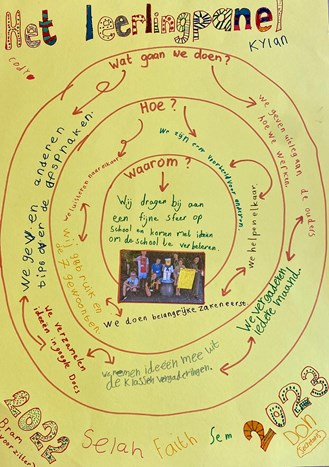 Het leerlingpanel
Kylan
Codi
Wat gaan we doen?
We geven anderen
tips over de afspraken.
We geven uitleg aan de ouders
hoe we werken.
Hoe?
We zijn een voorbeeld voor anderen
We luisteren naar elkaar.
we helpen elkaar.
Waarom?
Wij dragen bij aan
een fijne sfeer op
school en komen met ideeën
om de school te verbeteren.
gebruiken
de 7 gewoonten
we doen belangrijke zaken eerst.
We vergaderen
iedere maand.
We verzamelen
ideeën in google Docs
we nemen ideeën mee uit
de klassenvergaderingen.
2022
2023
Bram
voorzitter
Selah
Faith
Sem
Don